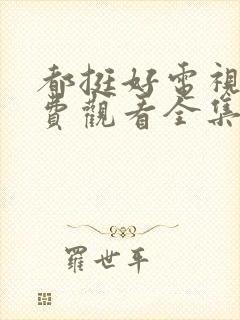 都挺好電視
費觀看全集
羅世平